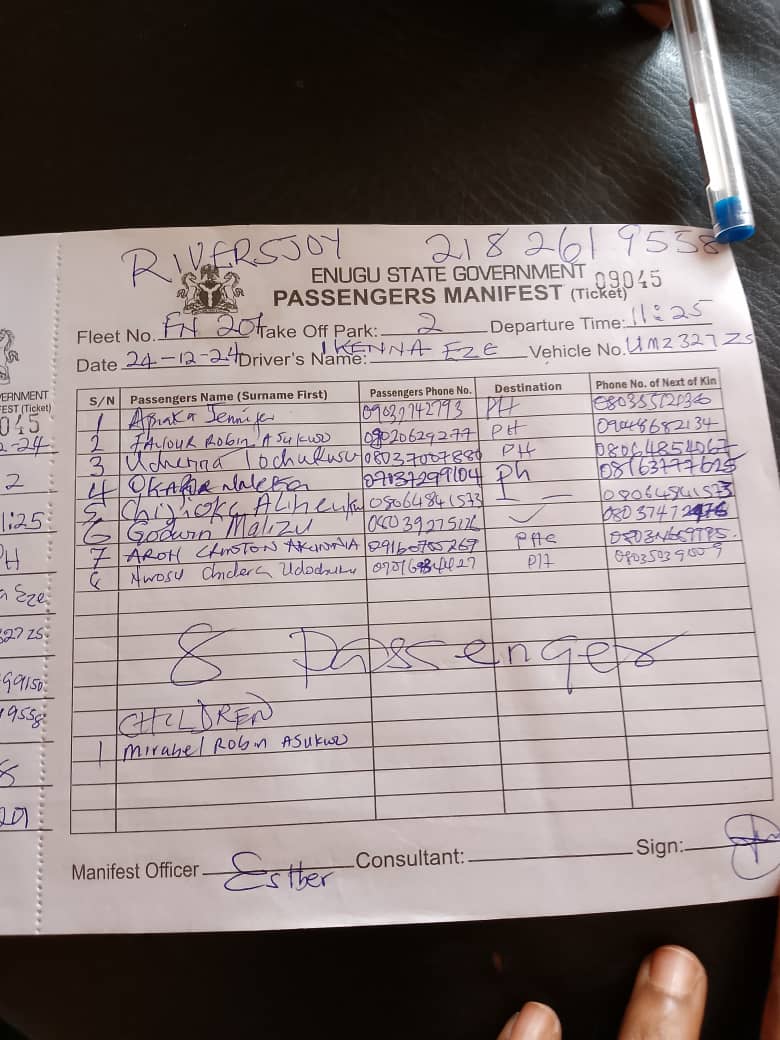 RIVERSJOY 218 261 9558
ENUGU STATE GOVERNMENT 09045
PASSENGERS MANIFEST (Ticket)
Fleet No. FN 201 Take Off Park: 2 Departure Time: 11:25
Date 24-12-24 Driver's Name: IKENNA EZE Vehicle No. UMZ 327 ZS
S/N Passengers Name (Surname First) Passengers Phone No. Destination Phone No. of Next of Kin
1 Jennifer 09037742793 PH
2 FAVOUR ROBIN ASUKWO 08020629277 PH 09048682134
3 Uchenna Tochukwu 08037007880 PH 08064854067
4 OKAFOR 07037299104 Ph 08163777625
5 Chijioke 08064841573 08064841573
6 Godwin Malizu 08039275176
7 AROH 09160755269 PHC
8 Nwosu Chidera Udochukwu PH
8 Passenger
CHILDREN
1 Mirabel ROBIN ASUKWO
Manifest Officer Esther Consultant: Sign:
ERNMENT
EST (Ticket)
045
2-24
2
1:25
PH
a Eze
327 ZS
99150
9558
8
201